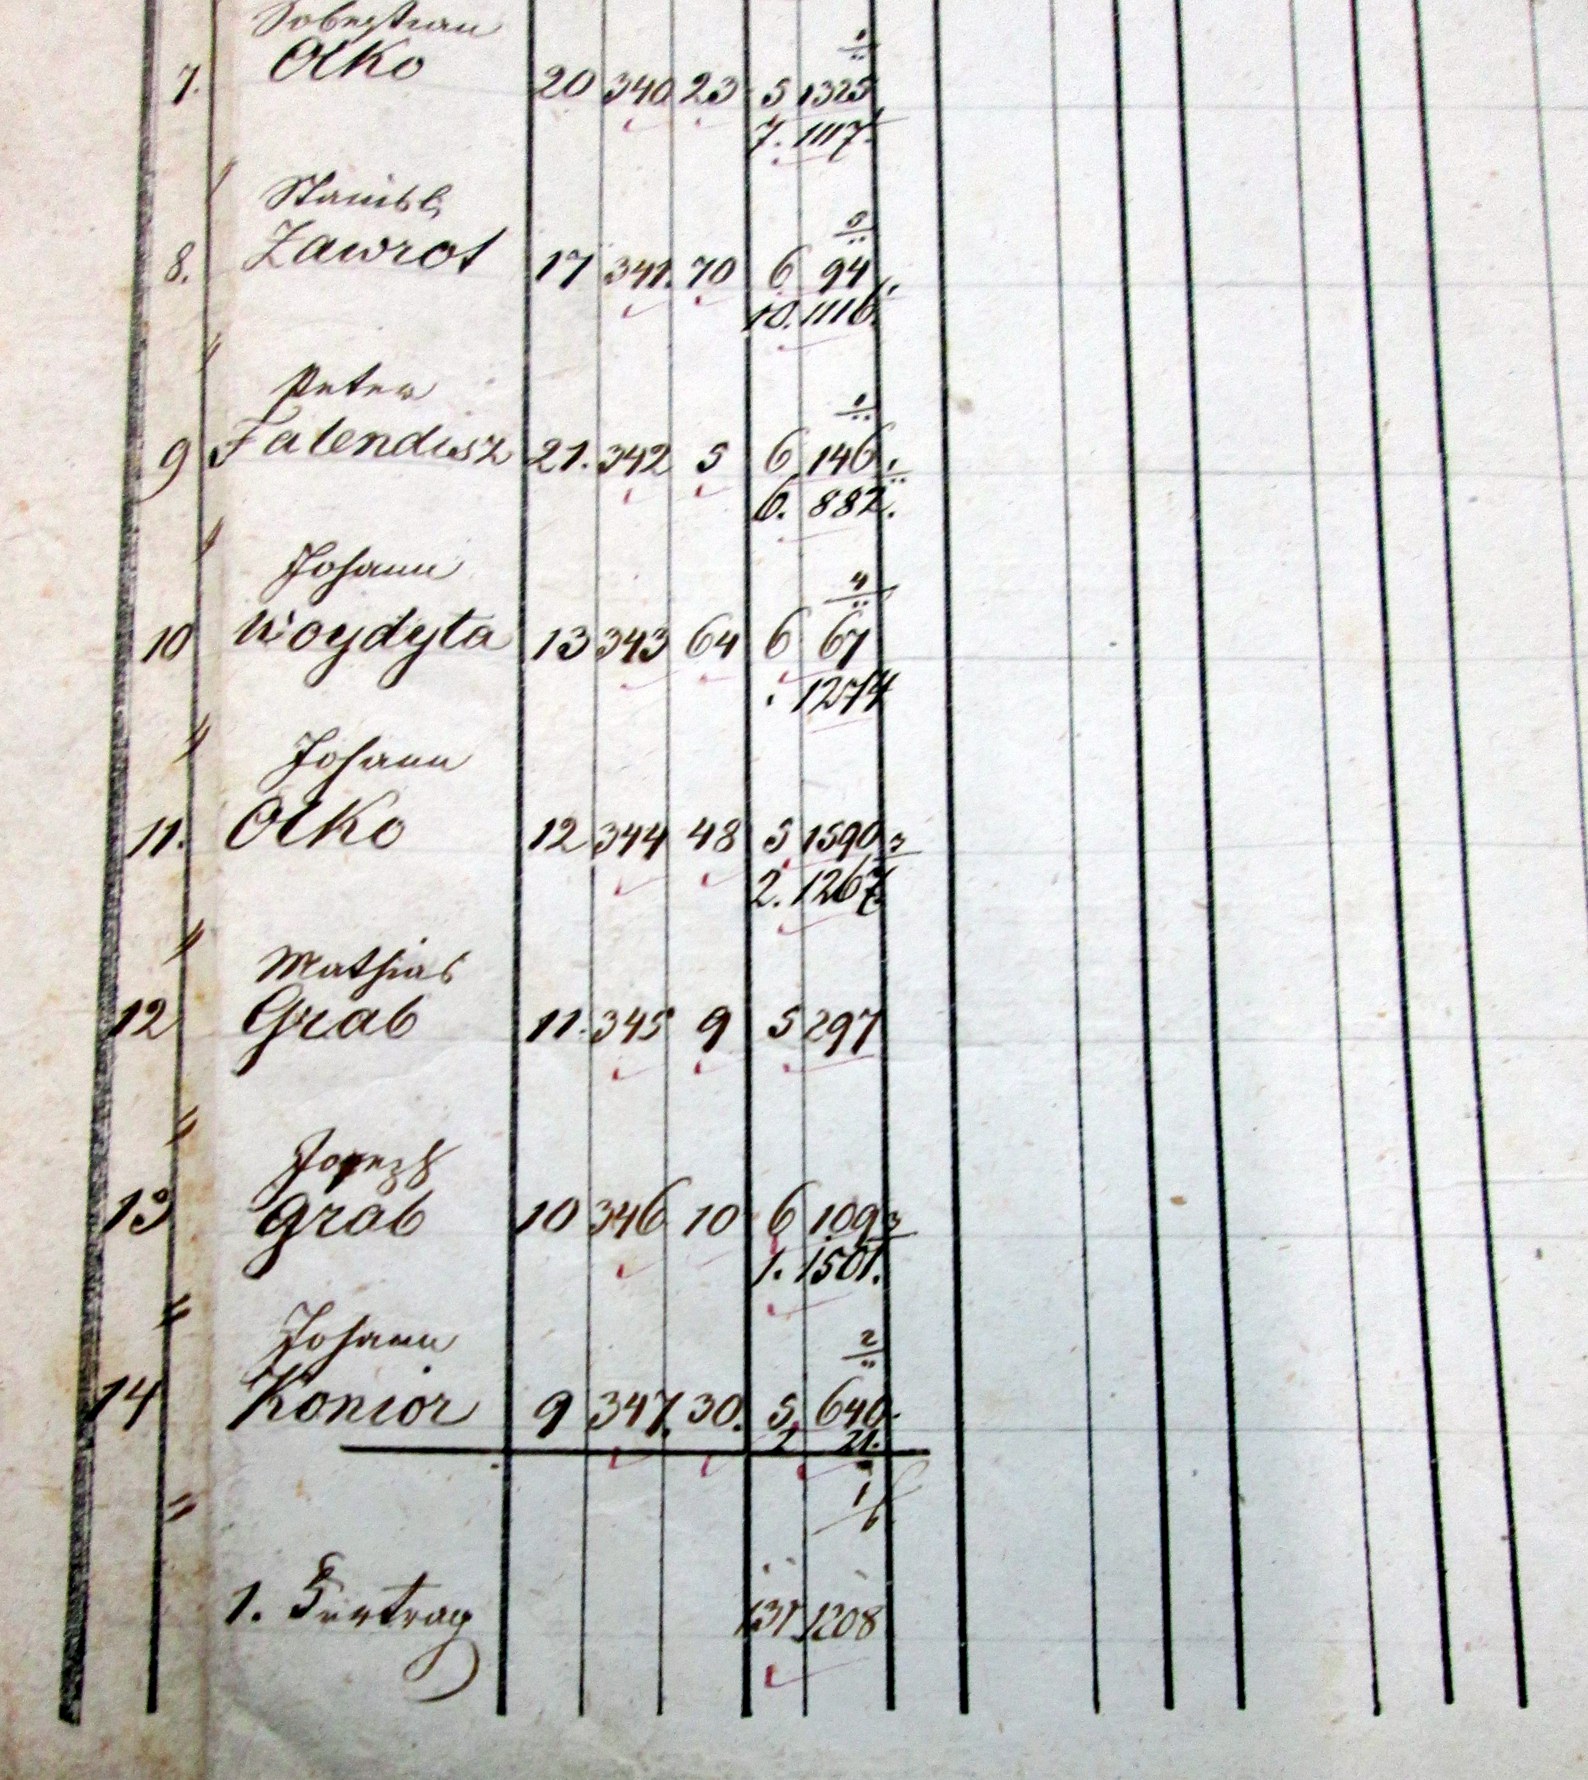 Sobestian
7. Olko 20 340 23 5 1325
7. 1117.
Stanisl.
8. Zawrot 17 341. 70 6 94
10. 1116.
Peter
9 Falendusz 21. 342 5 6 146
6. 882.
Johann
10 Woydyta 13 343 64 6 67
Johann
11. Olko 12 344 48 5 1590
2. 1267
Mathias
12 Grab 11. 345 9 5 297
Josezf
13 Grab 10 346 10 6 109
1. 1501.
Johann
14 Konior 9 347. 30. 5 640.
2 21.
1. Furtrag 131 1208